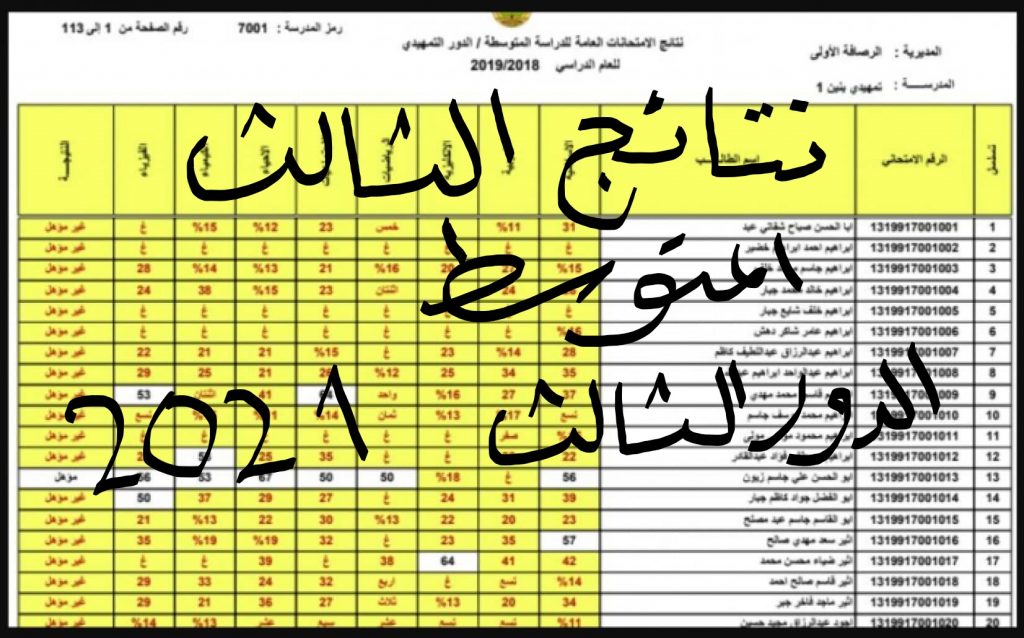 نتائج الامتحانات العامة للدراسة المتوسطة / الدور التمهيدي
للعام الدراسي 2019/2018
المديرية : الرصافة الأولى
المدرسة : تمهيدي بنين 1
رمز المدرسة : 7001
رقم الصفحة من 1 إلى 113
نتائج الثالث
المتوسط
الدور الثالث 2021
تسلسل الرقم الامتحاني اسم الطالب الانكليزية الرياضيات الاحياء الكيمياء الفيزياء النتيجة
1 1319917001001 ابا الحسن صباح شغاتي عبد 31 %11 خمس 23 %12 %15 غ غير مؤهل
2 1319917001002 ابراهيم احمد ابراهيم خضير غ غ غ غ غ غ غ غير مؤهل
3 1319917001003 ابراهيم جاسم %15 20 %16 21 %13 %14 28 غير مؤهل
4 1319917001004 ابراهيم خالد محمد جبار 24 اثنتان 23 %15 38 24 غير مؤهل
5 1319917001005 ابراهيم خلف شايع جبار غ غ غ غ غ غ غير مؤهل
6 1319917001006 ابراهيم عامر شاكر دهش غ غ غ غ غ غ غير مؤهل
7 1319917001007 ابراهيم عبدالرزاق عبداللطيف كاظم 28 %14 23 غ %15 21 21 22 غير مؤهل
8 1319917001008 ابراهيم عبدالواحد ابراهيم 35 34 25 %12 26 21 25 29 غير مؤهل
9 1319917001009 قاسم محمد مهدي 37 27 %16 واحد 41 اثنتان 53 غير مؤهل
10 1319917001010 ابراهيم محمد يوسف جاسم تسع %17 %13 ثمان %14 تسع غير مؤهل
11 1319917001011 ابراهيم محمود مولى صفر غ غ غ غير مؤهل
12 1319917001012 فؤاد عبدالقادر 22 غ 35 25 غ غير مؤهل
13 1319917001013 ابو الحسن علي جاسم زبون 56 غ %18 50 50 67 53 56 مؤهل
14 1319917001014 ابو الفضل جواد كاظم جبار 39 31 24 غ 27 29 37 50 غير مؤهل
15 1319917001015 ابو القاسم جاسم عبد مصلح 23 20 22 %13 30 22 %13 21 غير مؤهل
16 1319917001016 اثير سعد مهدي صالح 57 35 23 غ 32 %19 %19 35 غير مؤهل
17 1319917001017 اثير ضياء محسن محمد 42 41 64 38 غ 39 غ غ غير مؤهل
18 1319917001018 اثير قاسم صالح احمد %14 تسع غ اربع 32 24 33 29 غير مؤهل
19 1319917001019 اثير ماجد فاخر جبر 34 20 %13 ثلاث 27 36 21 29 غير مؤهل
20 1319917001020 اجود عبدالرزاق مجيد حسين %11 تسع تسع عشر سبع عشر %13 %14 غير مؤهل